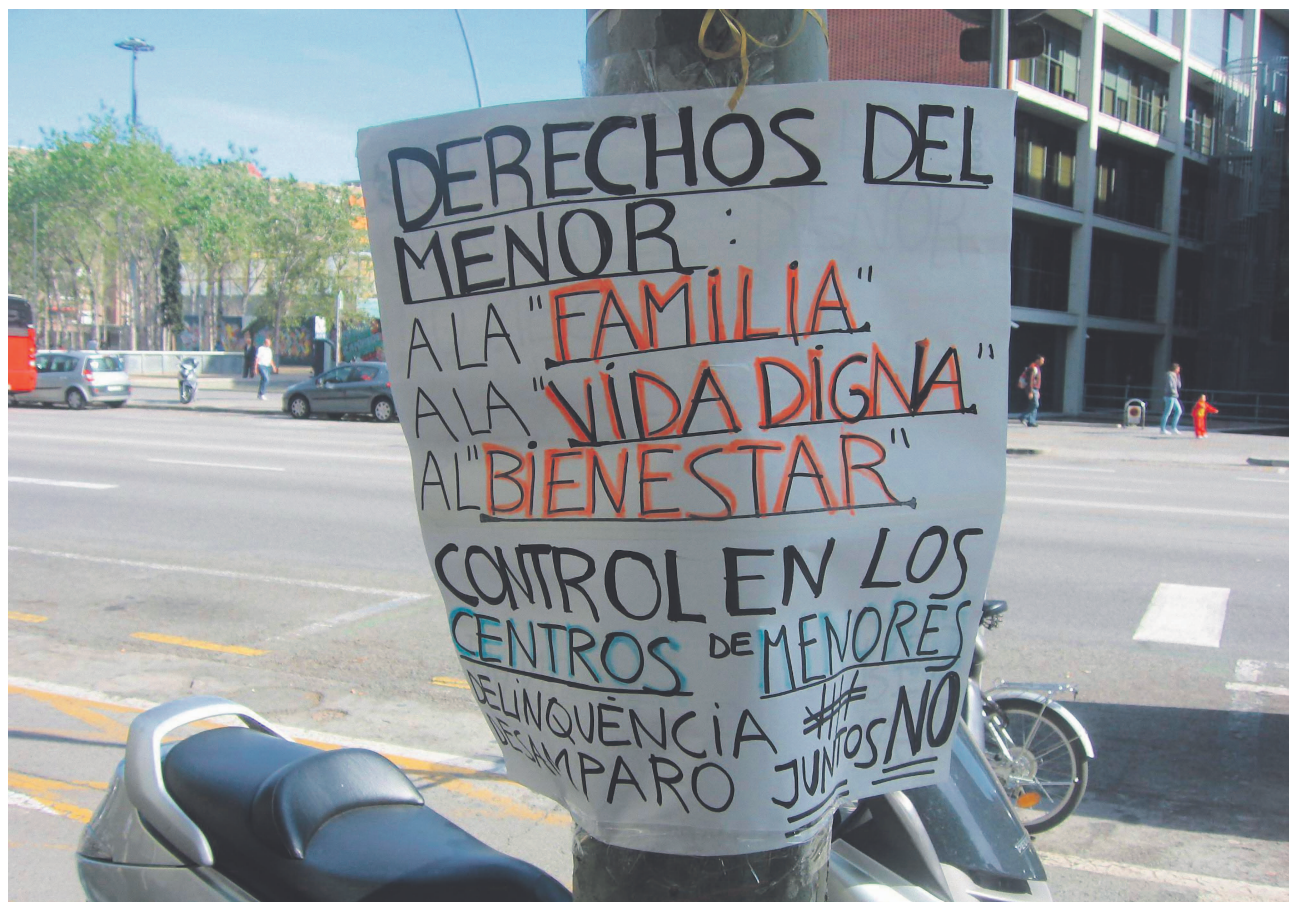 DERECHOS DEL
MENOR :
A LA "FAMILIA"
A LA "VIDA DIGNA"
AL "BIENESTAR"
CONTROL EN LOS
CENTROS DE MENORES
DELINQUÈNCIA
DESAMPARO JUNTOS NO